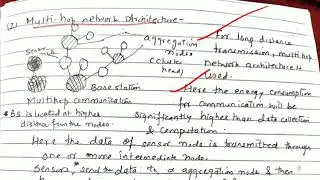 (2) Multi-hop network Architecture -
aggregation nodes
(cluster heads)
Sensor node
Base station
Multihop communication
* BS is located at higher
distance from the nodes.
→ For long distance
transmission, multihop
network architecture is
used.
→ Here the energy consumption
for communication will be
significantly higher than data collection
& computation.
Here the data of sensor node is transmitted through
one or more intermediate nodes.
Sensors send the data to a aggregation node & then